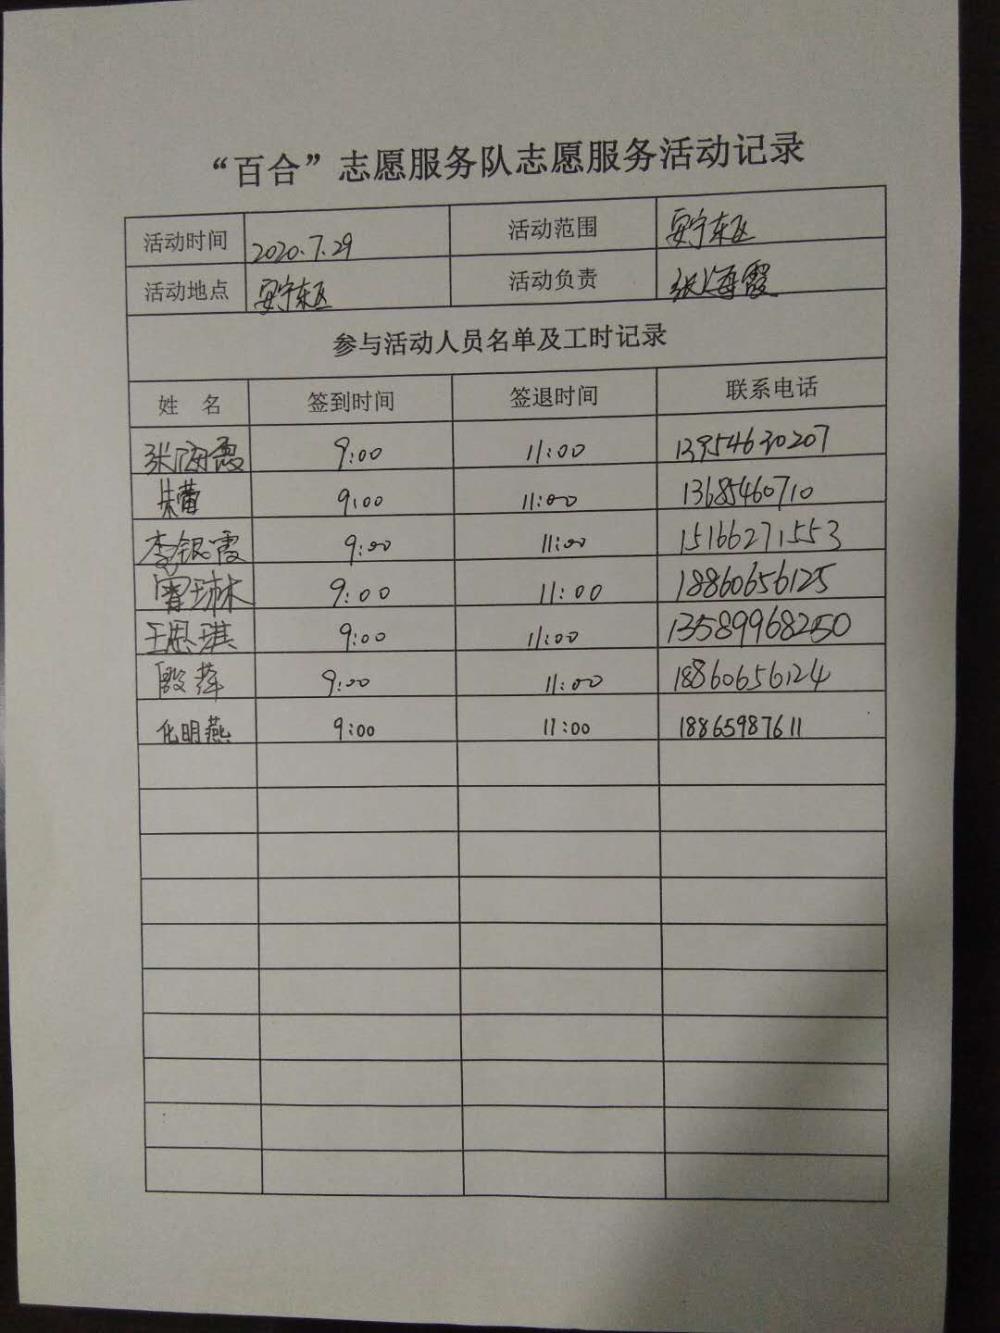 “百合”志愿服务队志愿服务活动记录
活动时间 2020.7.29 活动范围 安宁东区
活动地点 安宁东区 活动负责 张海霞
参与活动人员名单及工时记录
姓 名 签到时间 签退时间 联系电话
张海霞 9:00 11:00 13954630207
朱蕾 9:00 11:00 13685460710
李银霞 9:00 11:00 15166271553
9:00 11:00 18860656125
王思琪 9:00 11:00 13589968250
殷萍 9:00 11:00 18860656124
化明燕 9:00 11:00 18865987611